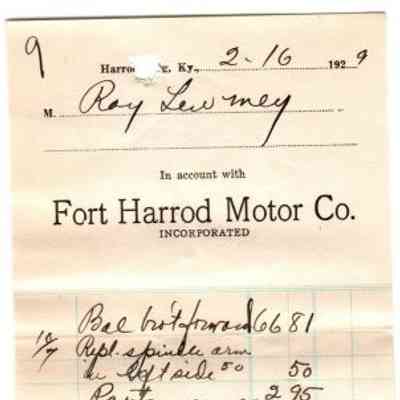 9
Harro g, Ky., 2-16 1929
M. Roy
In account with
Fort Harrod Motor Co.
INCORPORATED
Bal bro't forward 66 81
10/7 Repl. spindle arm
in left side 50 50
Parts 2 95